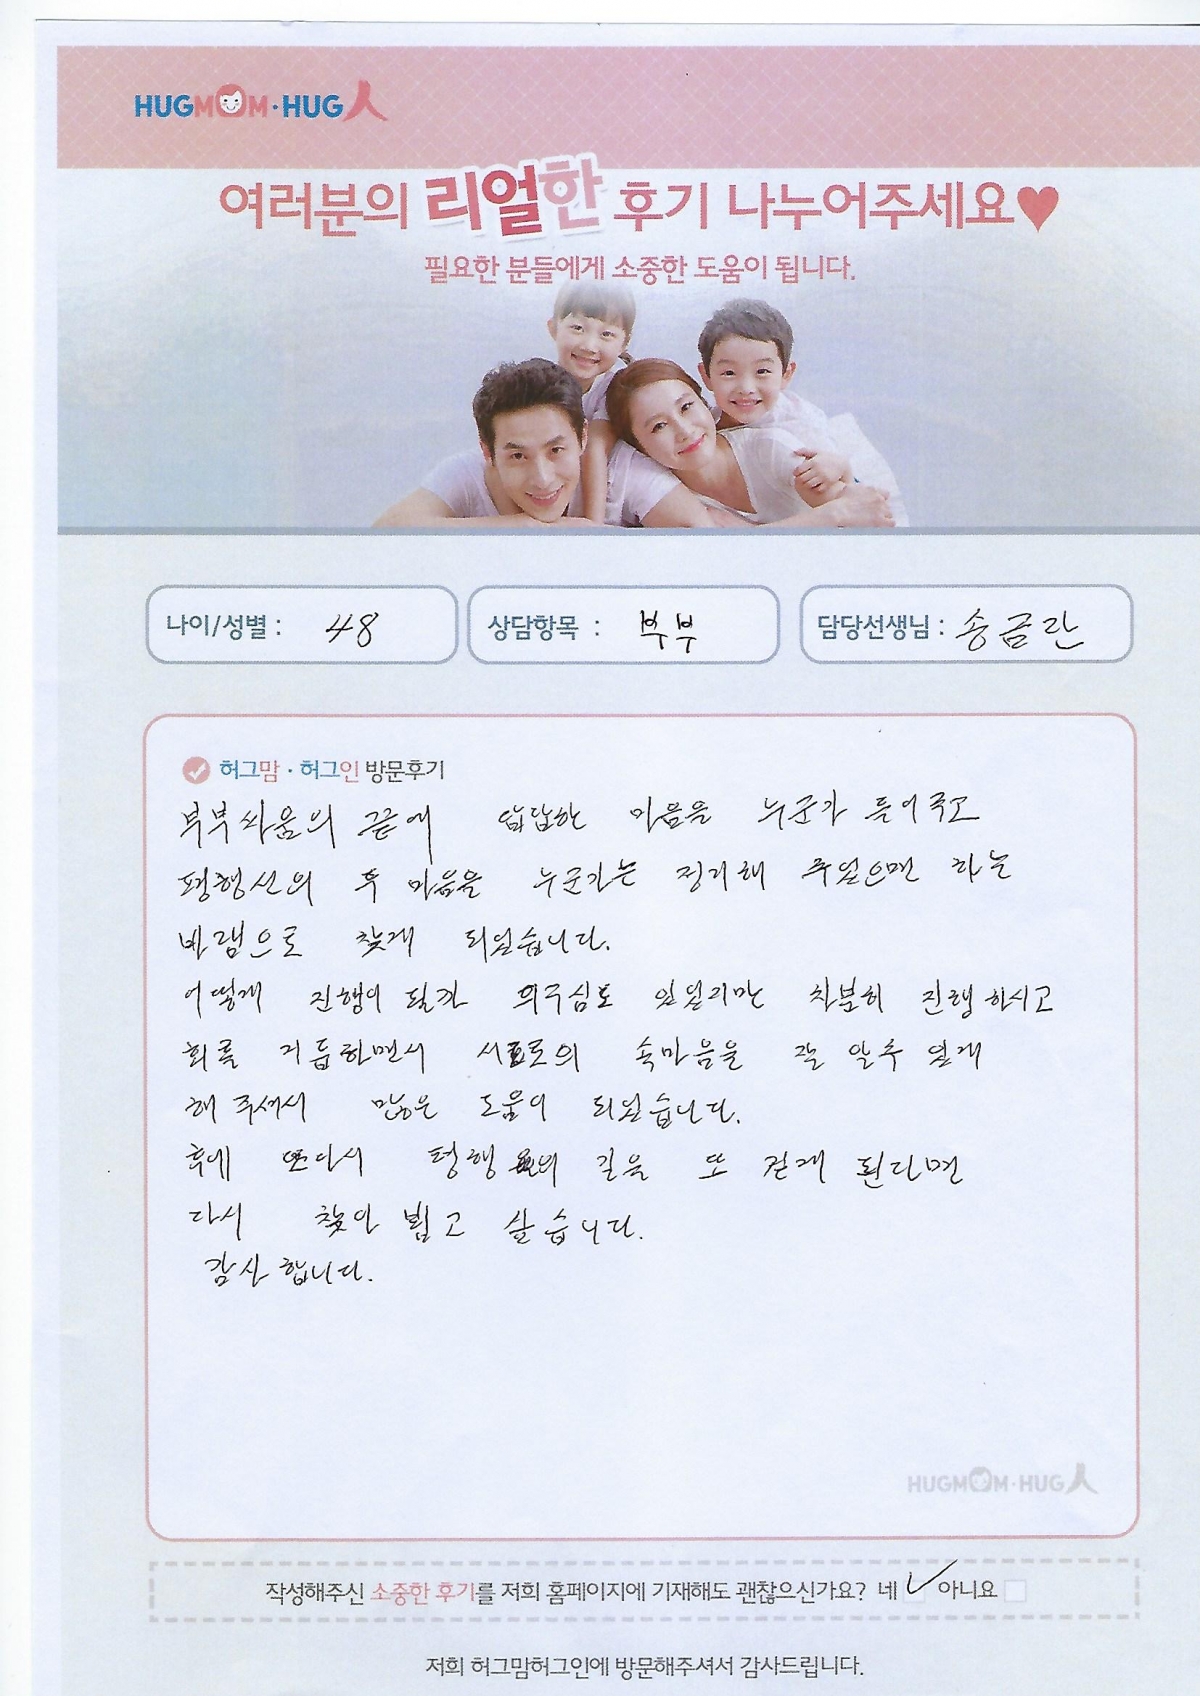 HUGMOM·HUG人
여러분의 리얼한 후기 나누어주세요♥
필요한 분들에게 소중한 도움이 됩니다.
나이/성별 : 48
상담항목 : 부부
담당선생님 : 송금란
허그맘·허그인 방문후기
부부싸움의 끝에 답답한 마음을 누군가 들어주고
평행선의 두 마음을 누군가는 정리해 주었으면 하는
바램으로 찾게 되었습니다.
어떻게 진행이 될가 의구심도 있었지만 차분히 진행하시고
회를 거듭하면서 서로의 속마음을 잘 알수 있게
해 주셔서 많은 도움이 되었습니다.
후에 또다시 평행의 길을 또 걷게 된다면
다시 찾아 뵙고 싶습니다.
감사합니다.
HUGMOM·HUG人
작성해주신 소중한 후기를 저희 홈페이지에 기재해도 괜찮으신가요? 네 ✓ 아니요 □
저희 허그맘허그인에 방문해주셔서 감사드립니다.